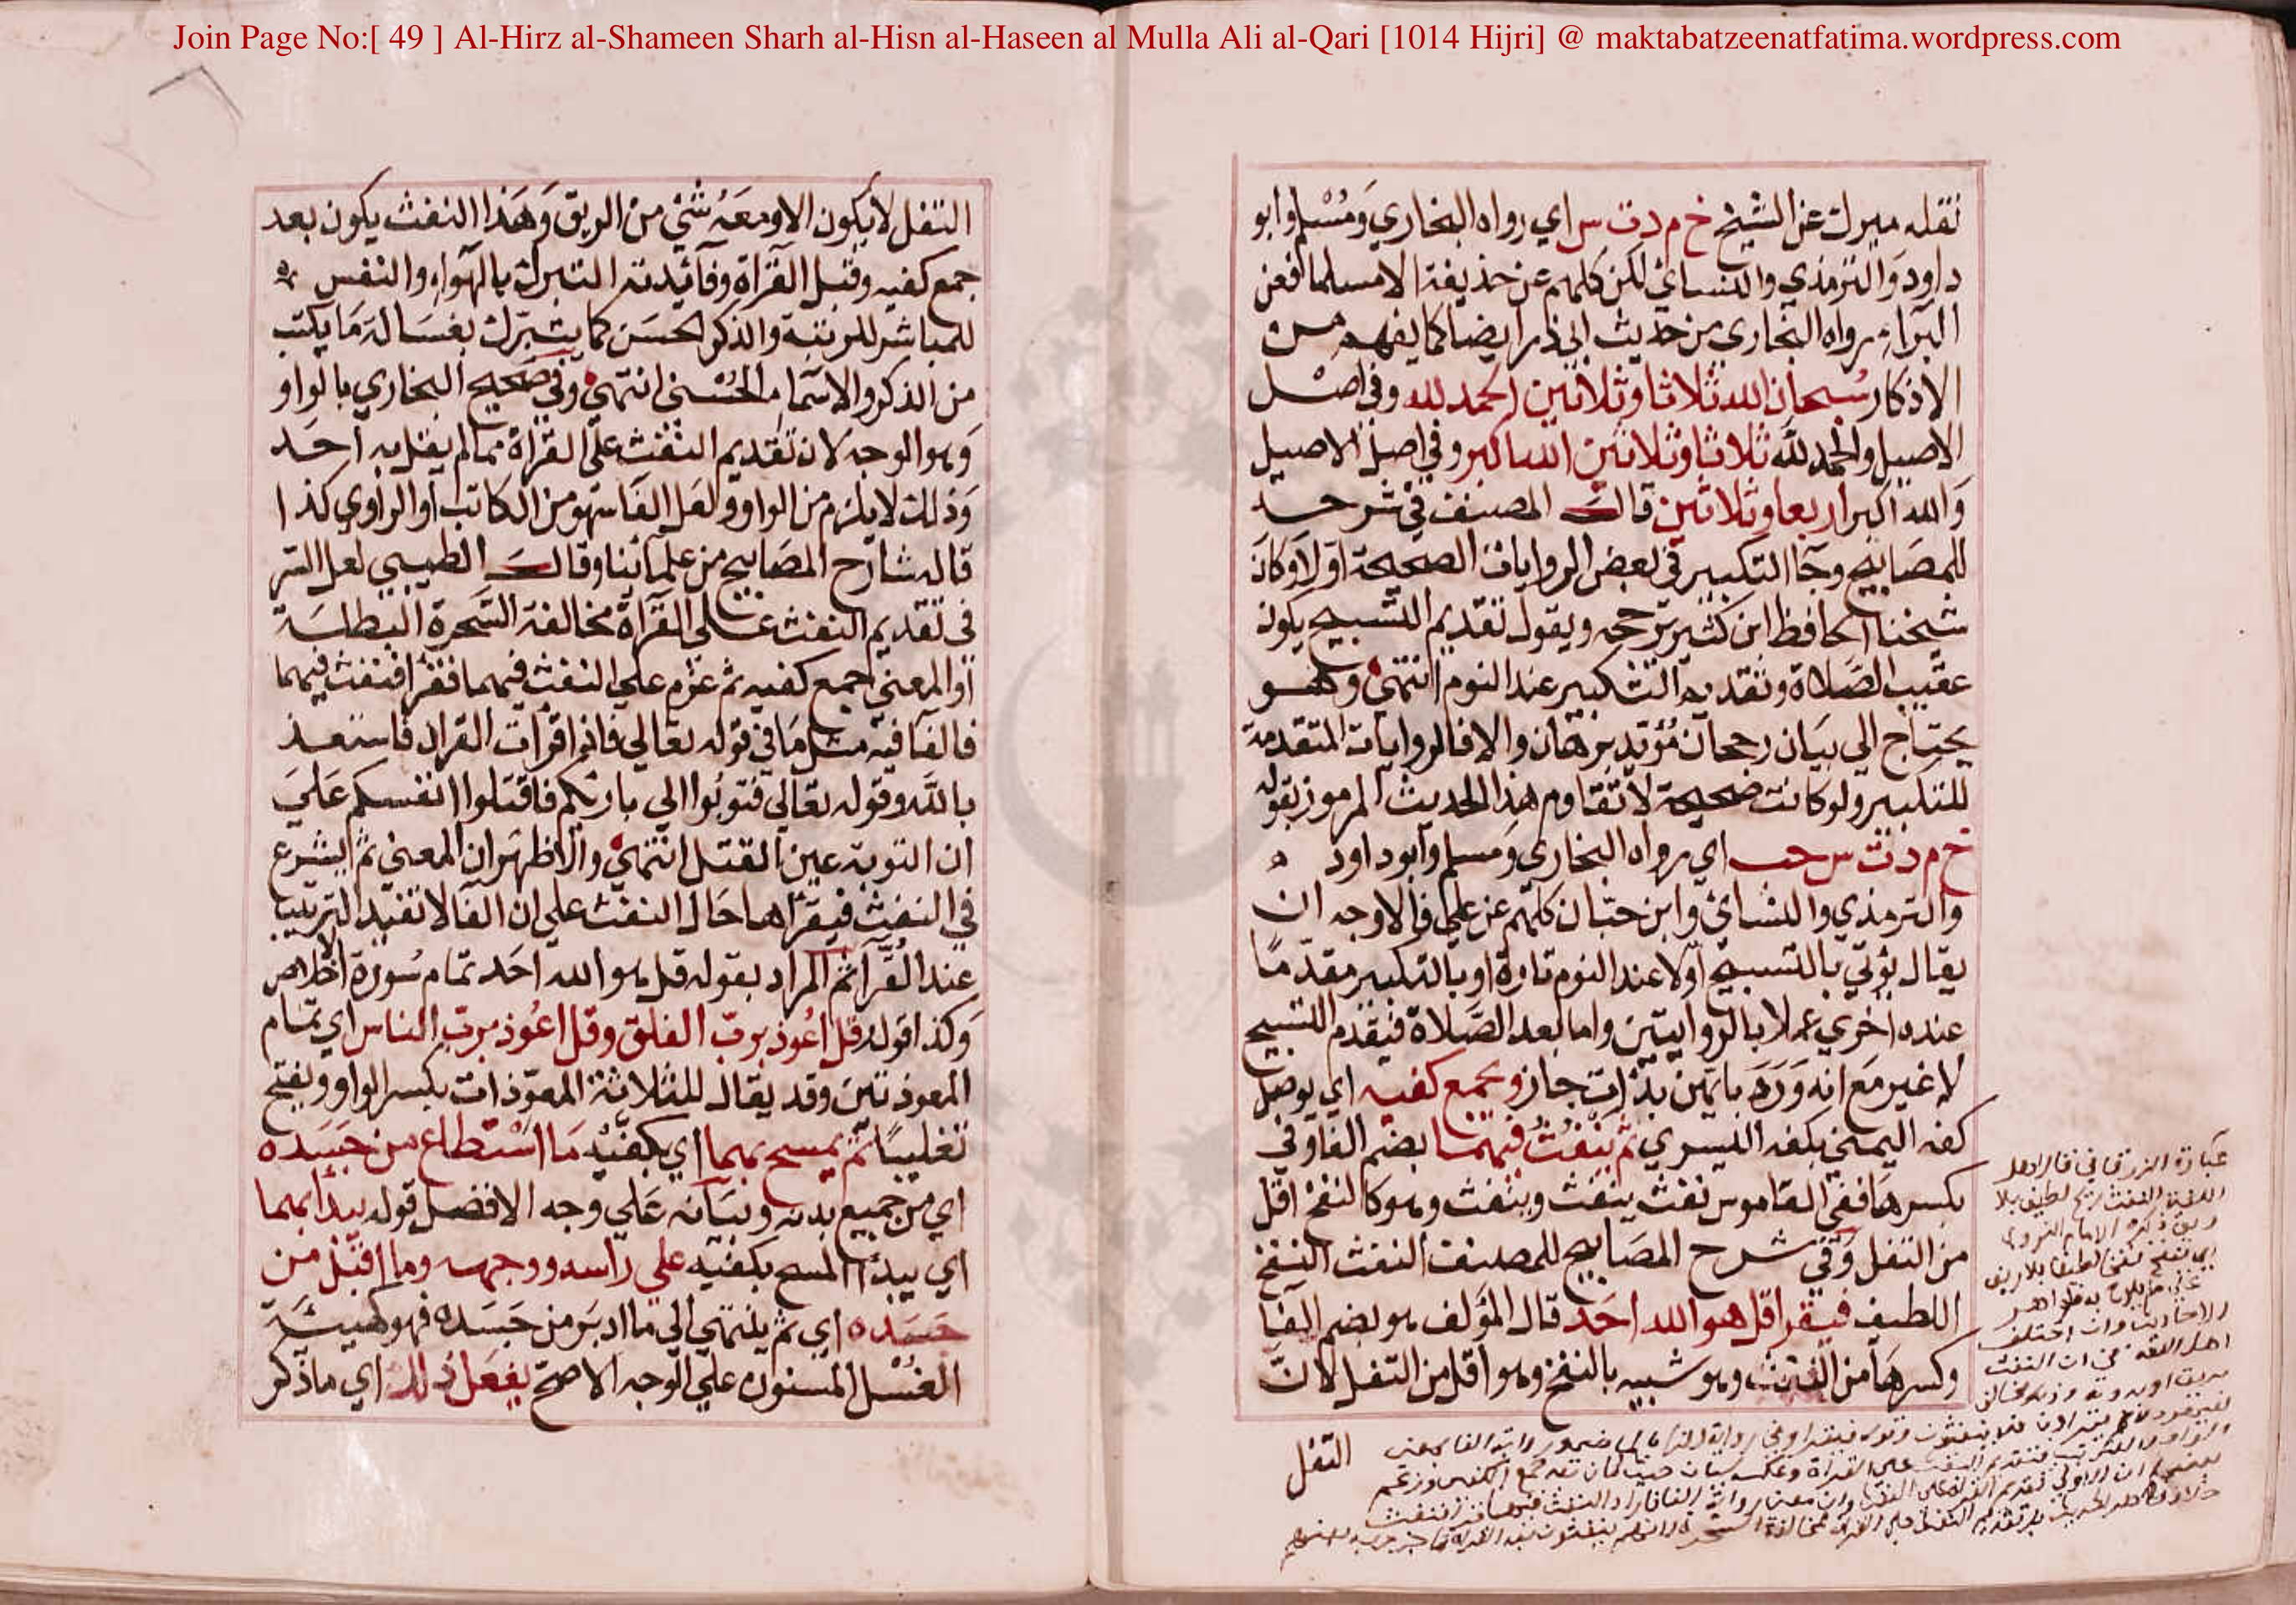 Join Page No:[ 49 ] Al-Hirz al-Shameen Sharh al-Hisn al-Haseen al Mulla Ali al-Qari [1014 Hijri] @ maktabatzeenatfatima.wordpress.com
نقله ميرك عن الشيخ خ م د ت س اي رواه البخاري ومسلم وابو
داود والترمذي والنسائي لكن كلهم عن حذيفة الا مسلما فعن
البراء رواه البخاري من حديث ابي ذر ايضا كما يفهم من
الاذكار سبحان الله ثلاثا وثلاثين الحمد لله وفي اصل
الاصيل والحمد لله ثلاثا وثلاثين الله اكبر وفي اصل الاصيل
والله اكبر اربعا وثلاثين قال المصنف في شرحه
للمصابيح وجا التكبير في بعض الروايات الصحيحة اولا وكان
شيخنا الحافظ ابن كثير يرجحه ويقول تقديم التسبيح يكون
عقيب الصلاة وتقديم التكبير عند النوم انتهى وهو
يحتاج الي بيان رجحان مؤيد ببرهان والا فالروايات المتقدمة
للتكبير ولو كانت صحيحة لا تقاوم هذا الحديث المرموز بقوله
خ م د ت س حب اي رواه البخاري ومسلم وابو داود
والترمذي والنسائي وابن حبان كلهم عن علي فالاوجه ان
يقال يؤتي بالتسبيح اولا عند النوم تارة او بالتكبير مقدما
عنده اخري عملا بالروايتين واما بعد الصلاة فيقدم التسبيح
لا غير مع انه ورد بايهن بدات جاز ويجمع كفيه اي يوصل
كفه اليمني بكفه اليسري ثم ينفث فيهما بضم الفا وفي
بكسرها ففي القاموس نفث ينفث وينفث وهو كالنفخ اقل
من التفل وفي شرح المصابيح للمصنف النفث النفخ
اللطيف فيقرا قل هو الله احد قال المؤلف هو بضم الفا
وكسرها من النفث وهو شبيه بالنفخ وهو اقل من التفل لان
التفل
عبارة الزرقاني قال اهل
اللغة النفث ريح لطيف بلا
ريق ذكره الامام النووي
التفل لا يكون الا ومعه شئ من الريق وهذا النفث يكون بعد
جمع كفيه وقبل القراة وفائدته التبرك بالهواء والنفس
للمباشر للرقية والذكر الحسن كما يتبرك بغسالة ما يكتب
من الذكر والاسماء الحسنى انتهى وفي صحيح البخاري بالواو
وهو الوجه لان تقديم النفث على القراة مما لم يقل به احد
وذلك لا يلزم من الواو ولعل الفا سهو من الكاتب او الراوي كذا
قاله شارح المصابيح من علمائنا وقال الطيبي لعل السر
في تقديم النفث على القراة مخالفة السحرة البطلة
او المعني جمع كفيه ثم عزم علي النفث فيهما فقرا فنفث فيهما
فالفا فيه مثل ما في قوله تعالي فاذا قرات القران فاستعذ
بالله وقوله تعالي فتوبوا الي بارئكم فاقتلوا انفسكم علي
ان التوبة عين القتل انتهى والاظهر ان المعني ثم يشرع
في النفث فيقراهما حال النفث علي ان الفا لا تفيد الترتيب
عند الفرا ثم المراد بقوله قل هو الله احد تمام سورة الاخلاص
وكذا قوله قل اعوذ برب الفلق وقل اعوذ برب الناس اي تمام
المعوذتين وقد يقال للثلاثة المعوذات بكسر الواو وبفتح
تغليبا ثم يمسح بهما اي بكفيه ما استطاع من جسده
اي من جميع بدنه وبيانه علي وجه الافضل قوله يبدا بهما
اي يبدا المسح بكفيه علي راسه ووجهه وما اقبل من
جسده اي ثم ينتهي الي ما ادبر من جسده فهو كهيئة
الغسل المسنون علي الوجه الاصح يفعل ذلك اي ما ذكر